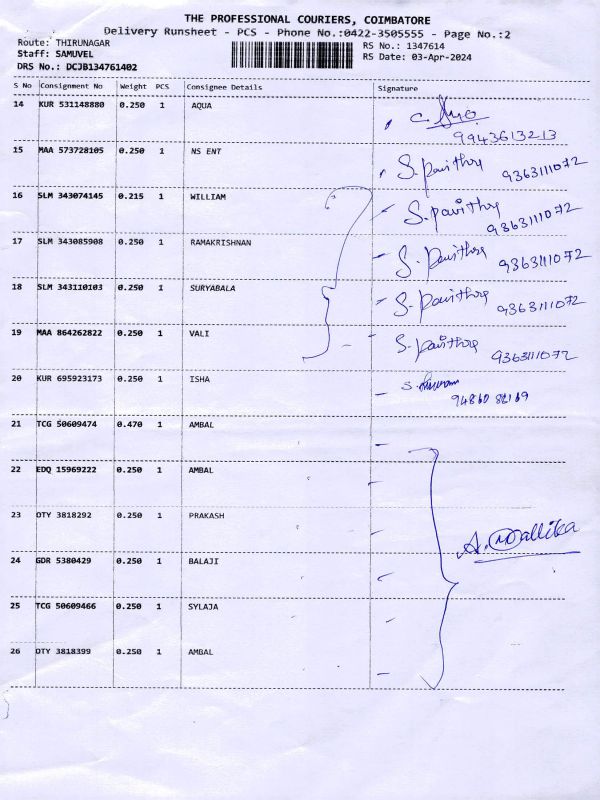 THE PROFESSIONAL COURIERS, COIMBATORE
Delivery Runsheet - PCS - Phone No.:0422-3505555 - Page No.:2
Route: THIRUNAGAR RS No.: 1347614
Staff: SAMUVEL RS Date: 03-Apr-2024
DRS No.: DCJB134761402
S No Consignment No Weight PCS Consignee Details Signature
14 KUR 531148880 0.250 1 AQUA
9943613213
15 MAA 573728105 0.250 1 NS ENT S. Pavithra 9363111072
16 SLM 343074145 0.215 1 WILLIAM S. Pavithra 9363111072
17 SLM 343085908 0.250 1 RAMAKRISHNAN S. Pavithra 9363111072
18 SLM 343110103 0.250 1 SURYABALA S. Pavithra 9363111072
19 MAA 864262822 0.250 1 VALI S. Pavithra 9363111072
20 KUR 695923173 0.250 1 ISHA
21 TCG 50609474 0.470 1 AMBAL
22 EDQ 15969222 0.250 1 AMBAL
23 OTY 3818292 0.250 1 PRAKASH A. Mallika
24 GDR 5380429 0.250 1 BALAJI
25 TCG 50609466 0.250 1 SYLAJA
26 OTY 3818399 0.250 1 AMBAL